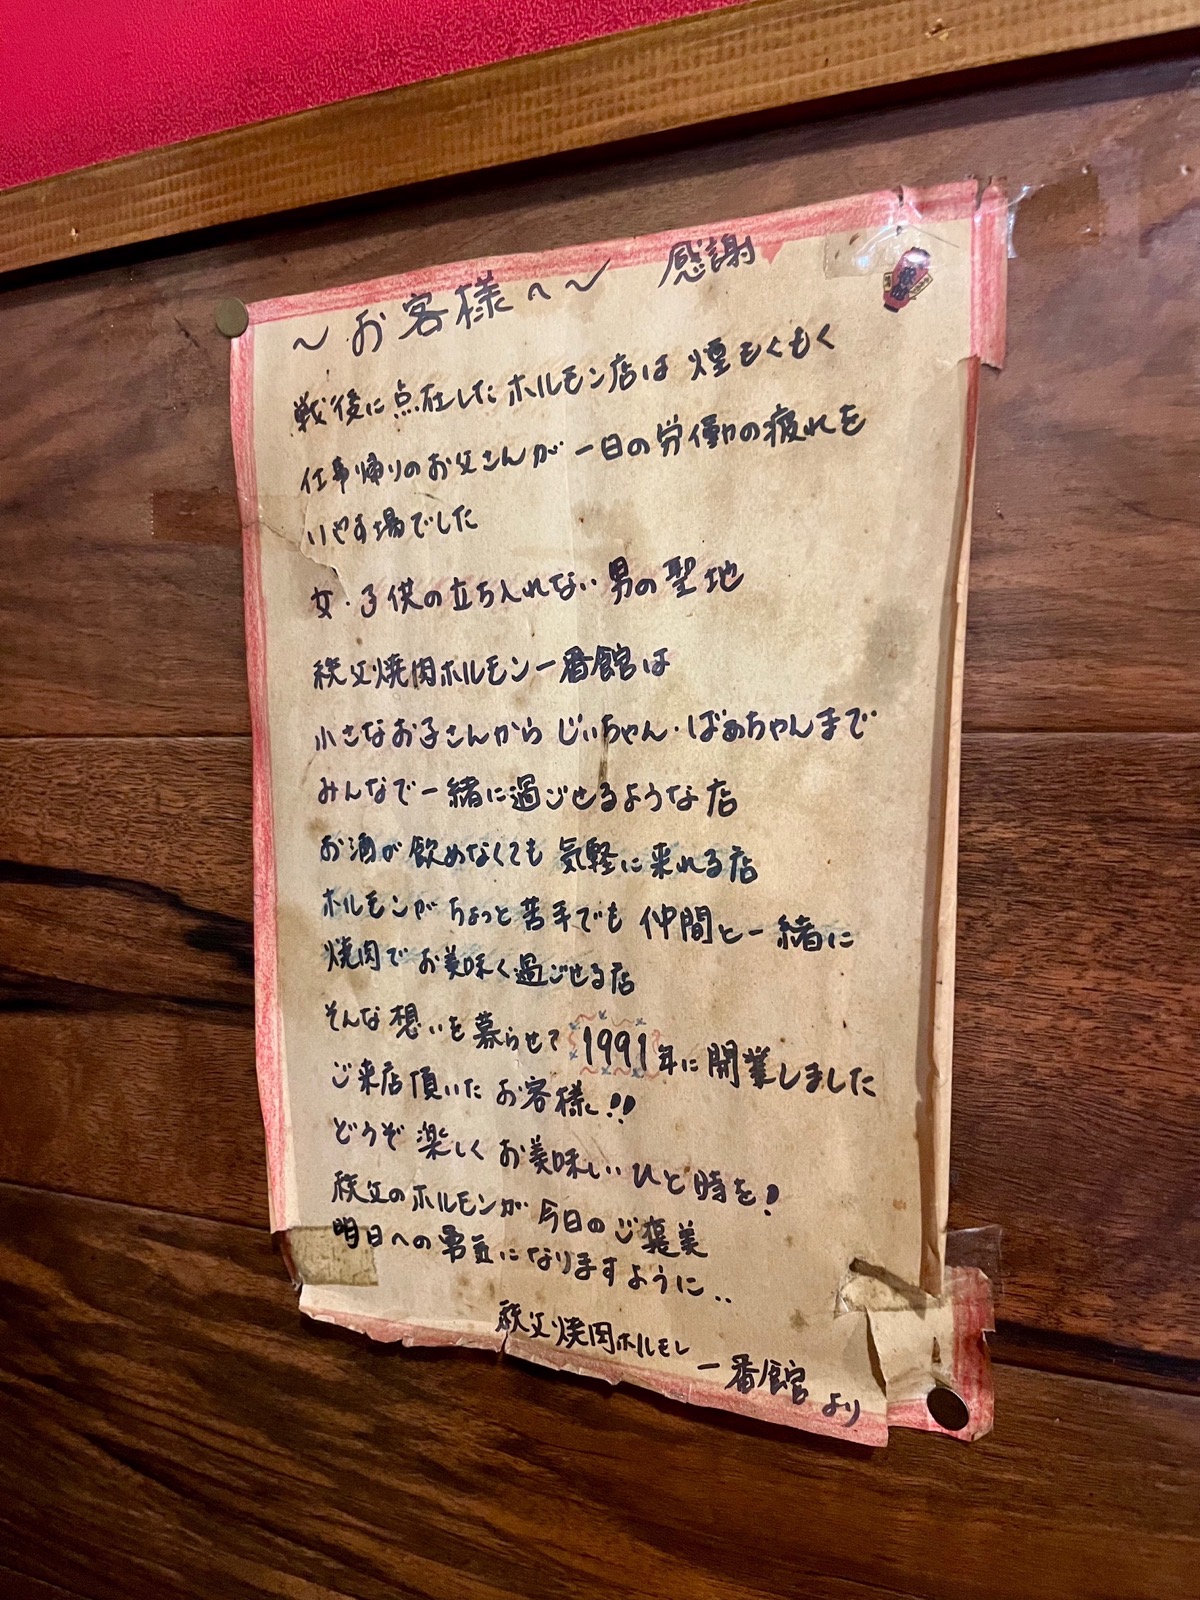 〜お客様へ〜 感謝
戦後に点在したホルモン店は 煙もくもく
仕事帰りのお父さんが 一日の労働の疲れを
いやす場でした
女・子供の立ち入れない 男の聖地
秩父焼肉ホルモン一番館は
小さなお子さんから じいちゃん・ばあちゃんまで
みんなで一緒に過ごせるような店
お酒が飲めなくても 気軽に来れる店
ホルモンがちょっと苦手でも 仲間と一緒に
焼肉でお美味く過ごせる店
そんな想いを募らせて 1991年に開業しました
ご来店頂いた お客様へ!!
どうぞ 楽しく お美味しい ひと時を!
秩父のホルモンが 今日のご褒美
明日への勇気になりますように..
秩父焼肉ホルモン
一番館 より